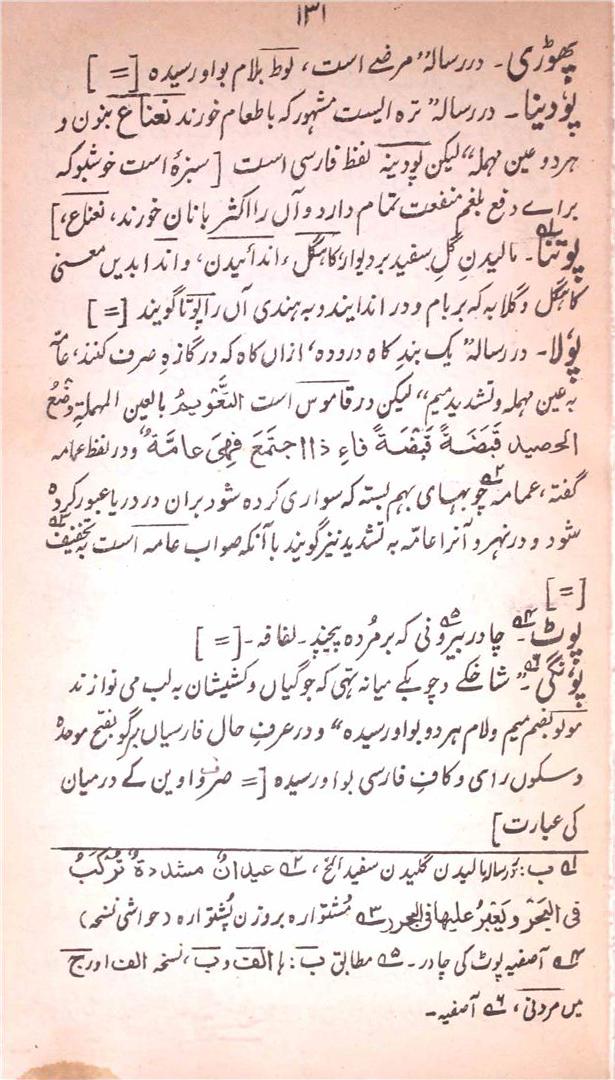 ۱۳۱
پھوڑی۔ در رسالہ ”مرضے است، لوط بلام بواو رسیدہ [=]
پودینا۔ در رسالہ ”ترہ ایست مشہور کہ با طعام خورند نعناع بنون و
ہر دو عین مہملہ“ لیکن پودینہ لفظ فارسی است [سبزۂ است خوشبو کہ
براے دفع بلغم منفعت تمام دارد و آں را اکثر با نان خورند، نعناع،]
پوتنا۱؎۔ مالیدنِ گلِ سفید بر دیوار، کاہگل، اندائیدن، و اندا بدیں معنی
کاہگل و گلابہ کہ بر بام و در اندایند و بہ ہندی آں را پوتا گویند [=]
پولا۔ در رسالہ ”یک بندِ کاہ درودہ، ازاں کاہ کہ در گازہ صرف کنند، عامّہ
بہ عین مہملہ و تشدید میم“ لیکن در قاموس است التعویم بالعین المہملۃ وضع
الحصید قبضۃً قبضۃً فاءِ ذا اجتمع فہی عامّۃ، و در لفظ عمامہ
گفتہ، عمامہ۲؎ چوبہاے بہم بستہ کہ سواری کردہ شود براں در دریا و عبور کردہ
شود و در نہر و آنرا عامّہ بہ تشدید نیز گویند با آنکہ صواب عامہ است بہ تخفیف۳؎
[=]
پوٹ۴؎۔ چادر بیرونی۵؎ کہ بر مُردہ پیچند۔ لفافہ۔ [=]
پونگی۶؎۔ ”شاخکے و چوبکے میانہ تہی کہ جوگیاں و کشیشان بہ لب می نوازند
مولو بضم میم و لام ہر دو بواو رسیدہ“ و در عرفِ حال فارسیاں برگو بفتح موحدہ
و سکوں رای و کافِ فارسی بواو رسیدہ [= صرف واوین کے درمیان
کی عبارت]
۱؎ ب: رسالہ مالیدن گلیدن سفید الخ، ۲؎ عیدانٌ مشددۃٌ تُرکَبُ
فی البَحَر و یَعبُرُ علیہا فی البحر ۳؎ مُشتوارہ بروزن پُشتوارہ (حواشی نسخہ)
۴؎ آصفیہ پوٹ کی چادر۔ ۵؎ مطابق ب: با الف و ب، نسخہ الف اور ج
میں مردنی، ۶؎ آصفیہ۔